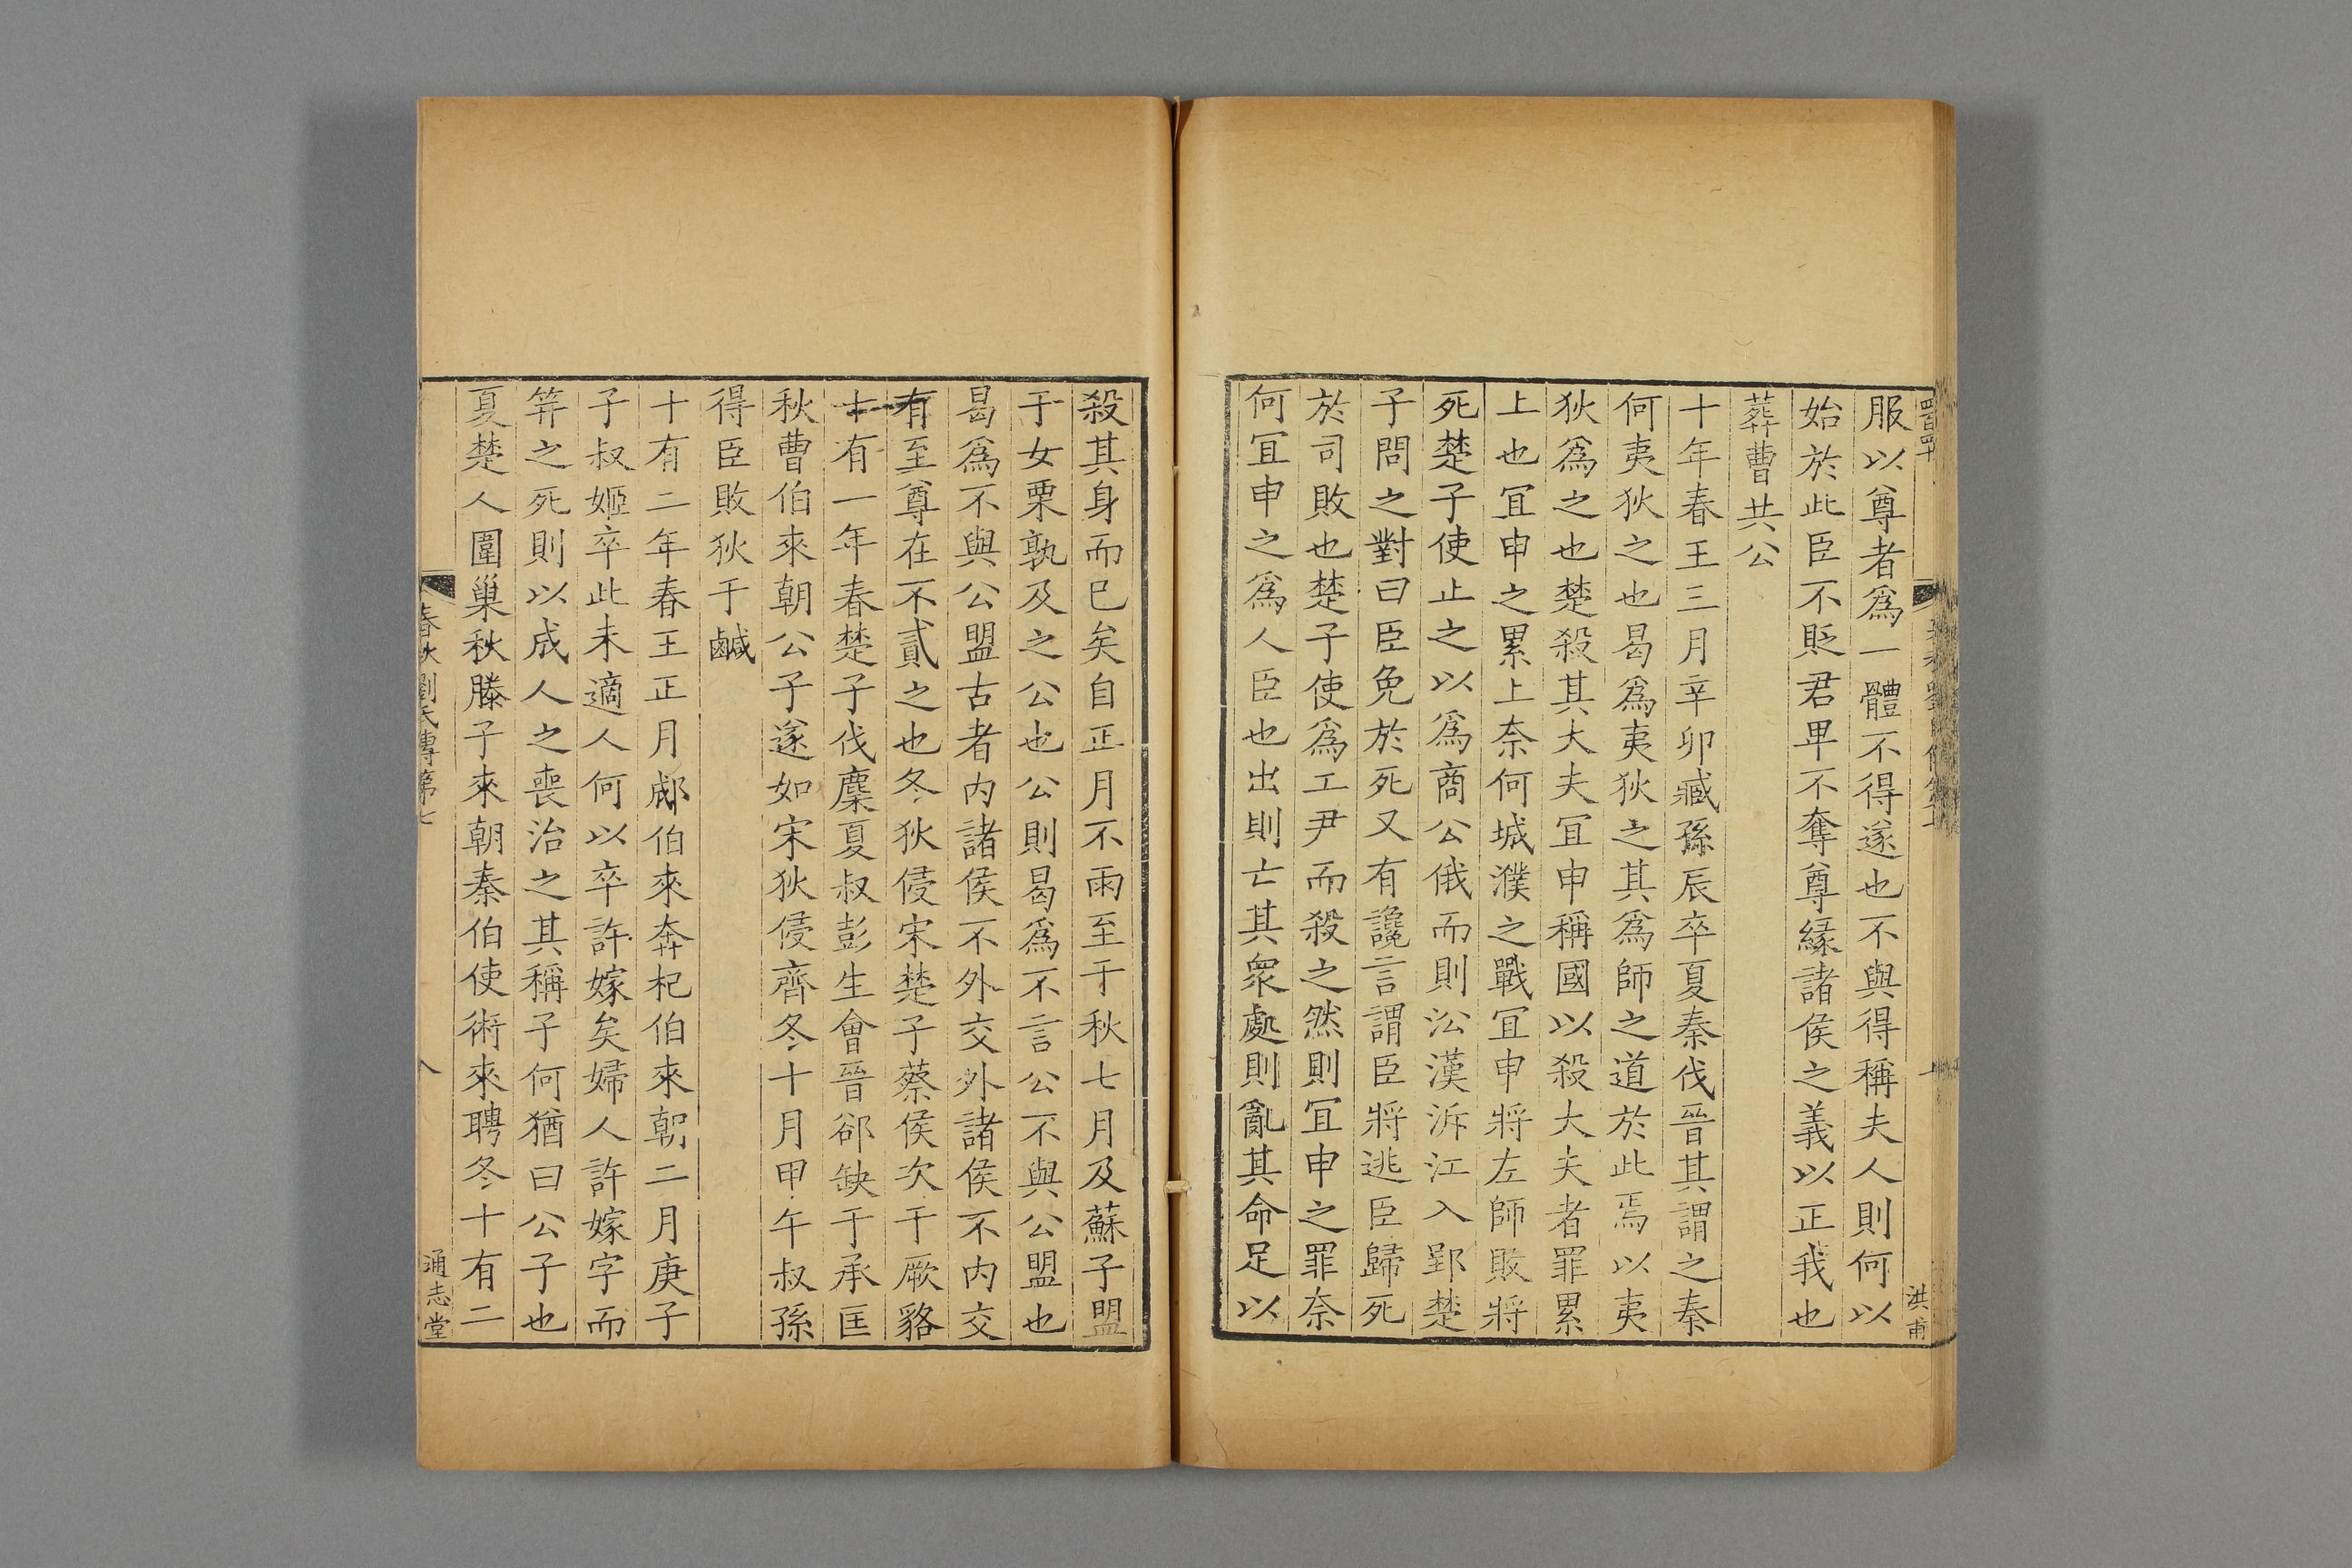 服以尊者爲一體不得遂也不與得稱夫人則何以
始於此臣不貶君卑不奪尊緣諸侯之義以正我也
葬曹共公
十年春王三月辛卯臧孫辰卒夏秦伐晉其謂之秦
何夷狄之也曷爲夷狄之其爲師之道於此焉以夷
狄爲之也楚殺其大夫冝申稱國以殺大夫者罪累
上也冝申之累上奈何城濮之戰冝申將左師敗將
死楚子使止之以爲商公俄而則㳂漢泝江入郢楚
子問之對曰臣免於死又有讒言謂臣將逃臣歸死
於司敗也楚子使爲工尹而殺之然則冝申之罪奈
何冝申之爲人臣也出則亡其衆處則亂其命足以
洪甫
殺其身而已矣自正月不雨至于秋七月及蘇子盟
于女栗孰及之公也公則曷爲不言公不與公盟也
曷爲不與公盟古者内諸侯不外交外諸侯不内交
有至尊在不貳之也冬狄侵宋楚子蔡侯次于厥貉
十有一年春楚子伐麇夏叔彭生會晉郤缺于承匡
秋曹伯來朝公子遂如宋狄侵齊冬十月甲午叔孫
得臣敗狄于鹹
十有二年春王正月郕伯來奔杞伯來朝二月庚子
子叔姬卒此未適人何以卒許嫁矣婦人許嫁字而
笄之死則以成人之喪治之其稱子何猶曰公子也
夏楚人圍巢秋滕子來朝秦伯使術來聘冬十有二
春秋劉氏傳第七
八
通志堂